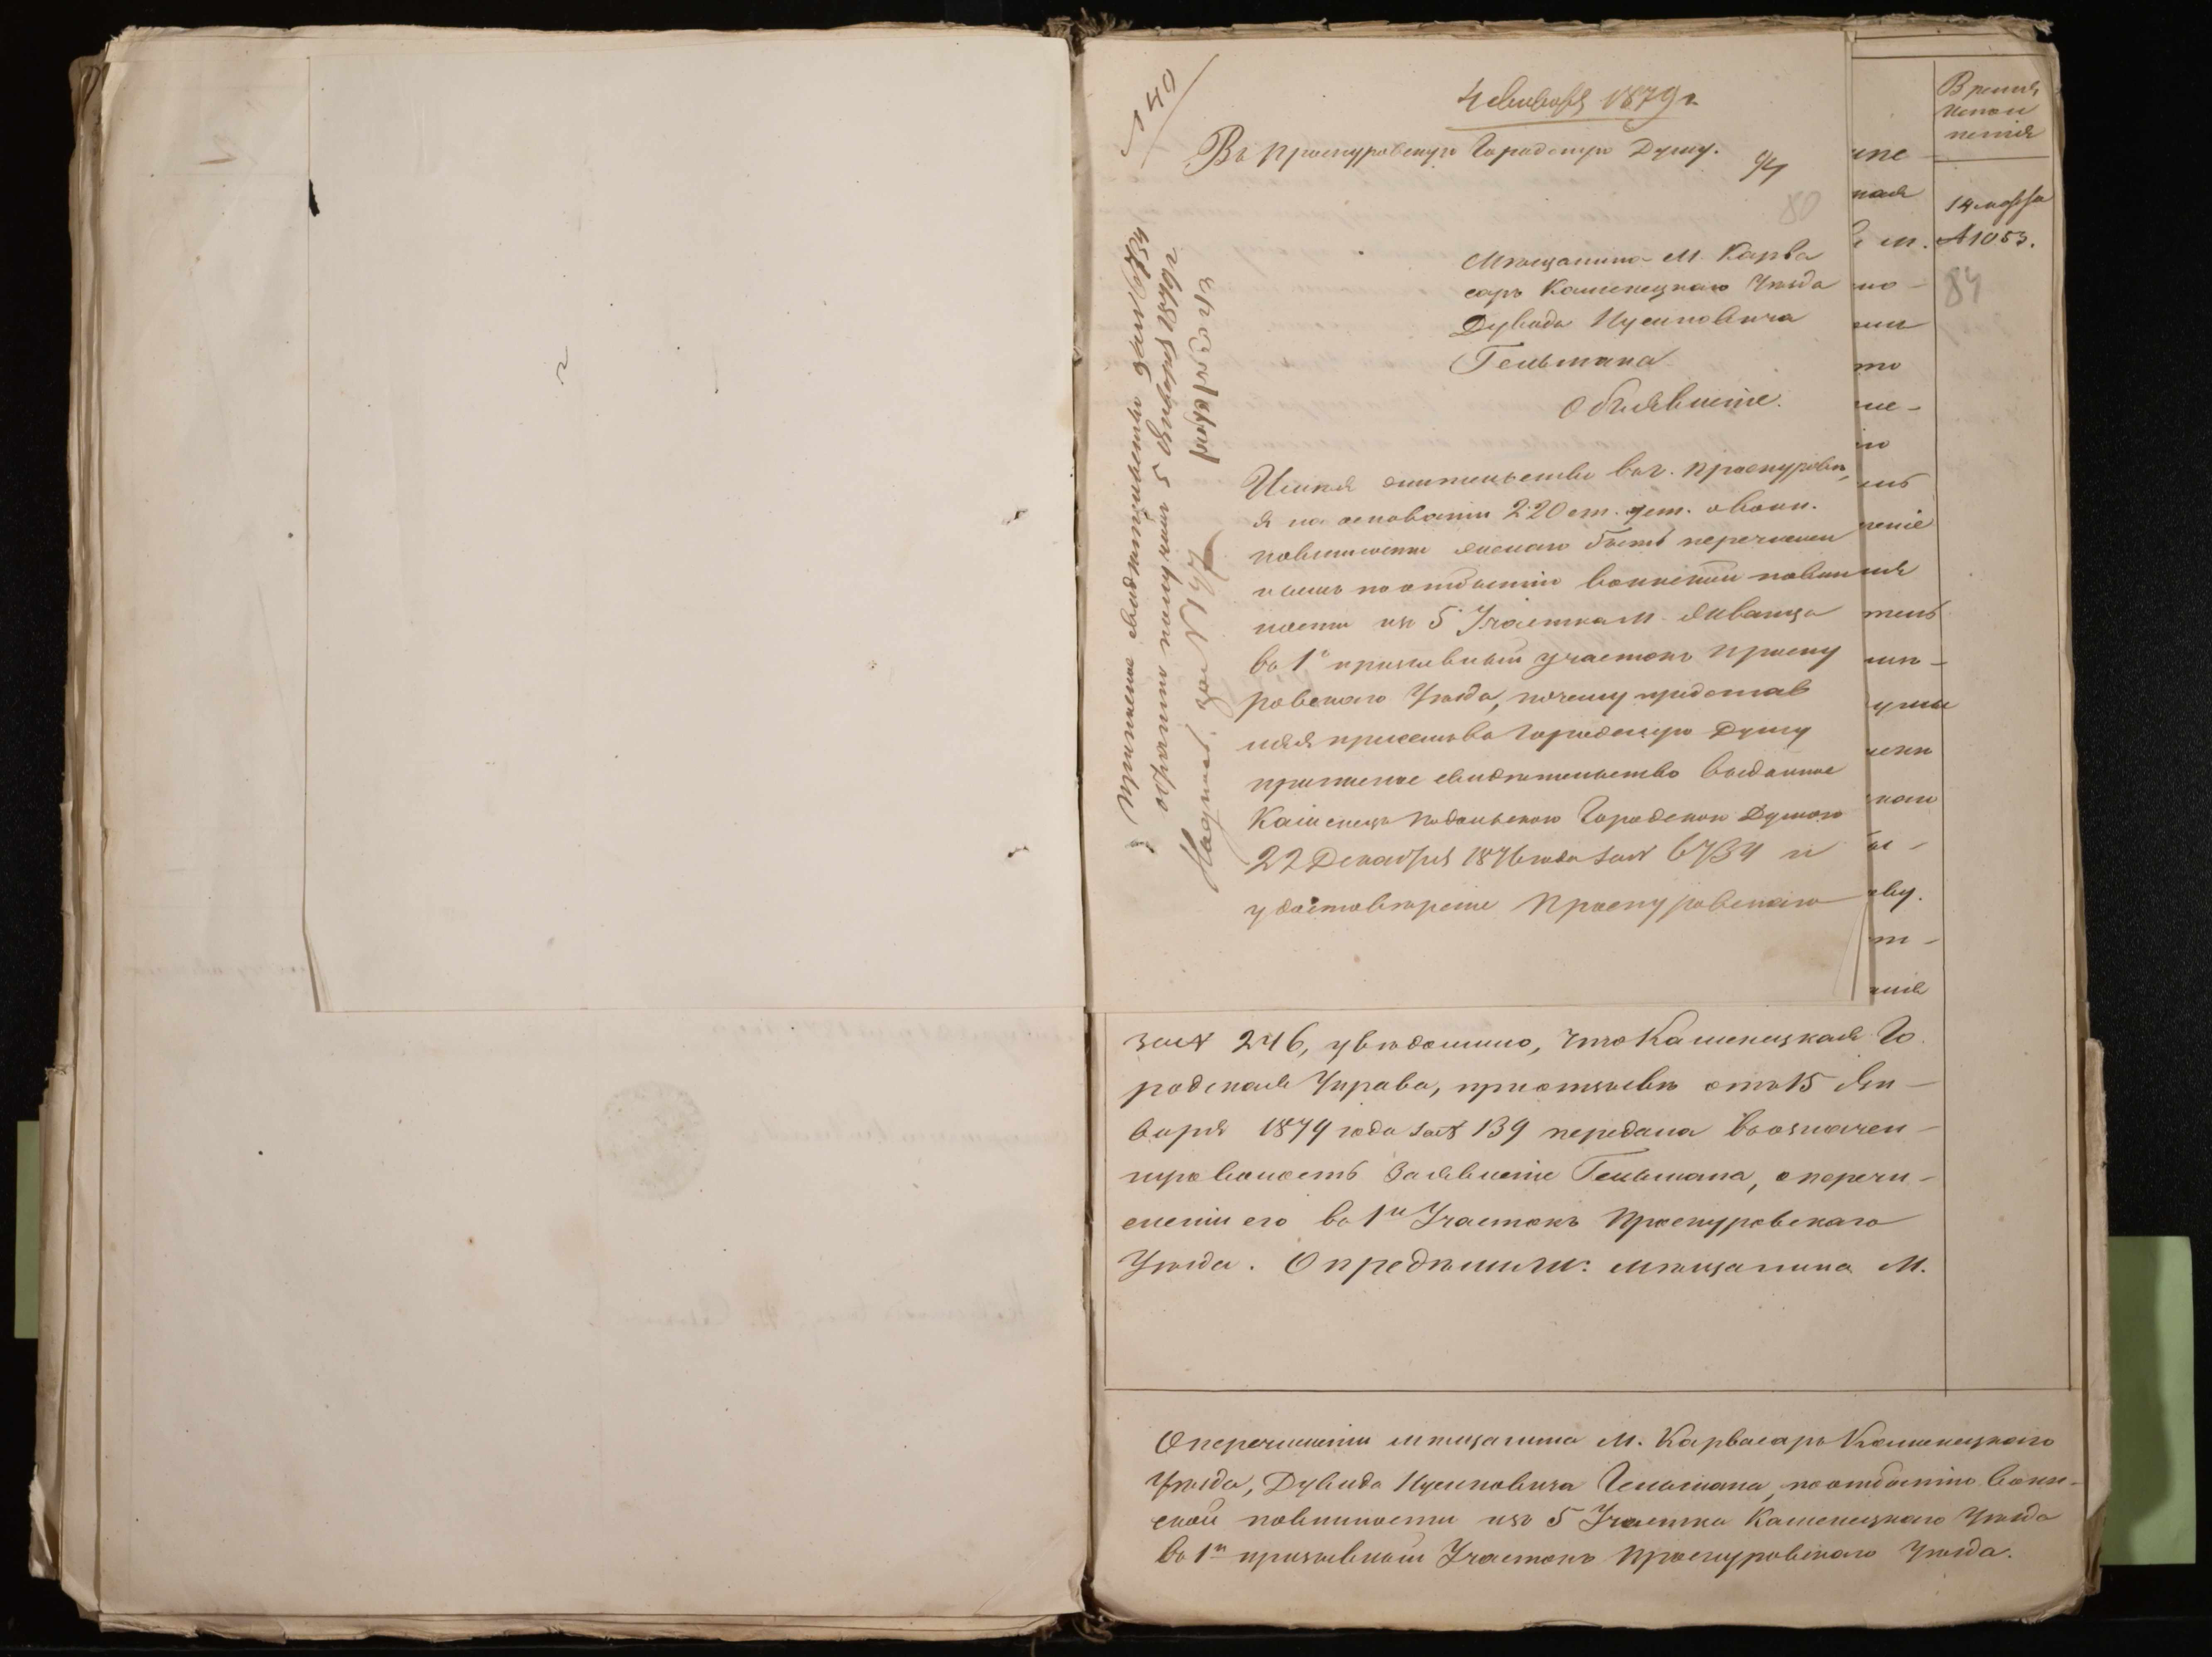 140
4 Января 1879 г.
Въ Проскуровскую Городскую Думу.
9/4
80
Мѣщанина М. Карва
саръ Каменецкаго Уѣзда
Дувида Нусиновича
Гельмана
Объявленіе.
Имѣя жительство въ г. Проскуровѣ,
я на основаніи 220 ст. уст. о воин.
повинности желаю быть перечислен
нымъ по отбытію воинской повин
ности изъ 5 Участка м. Жванца
въ 1й призывный участокъ Проску
ровскаго Уѣзда, почему представ
ляя при семъ въ Городскую Думу
приписное свидѣтельство выданное
Каменецъ Подольскою Городскою Думою
22 Декабря 1876 года за № 6734 и
удостовѣреніе Проскуровскаго
Приписное свидѣтельство за № 6734
обратно получилъ 5 1879 г.
Время
испол
ненія
14 марта
№ 1053.
84
за № 246, увѣдомило, что Каменецкая Го
родская Управа, при отзывѣ отъ 15 Ян-
варя 1879 года за № 139 передала въ означен-
ную волость Заявленіе Гельмана, о перечи-
сленіи его въ 1й Участокъ Проскуровскаго
Уѣзда. Опредѣлили: мѣщанина М.
О перечисленіи мѣщанина М. Карвасаръ Каменецкаго
Уѣзда, Дувида Нусиновича Гельмана, по отбытію воин-
ской повинности изъ 5 Участка Каменецкаго Уѣзда
въ 1й призывный Участокъ Проскуровскаго Уѣзда.